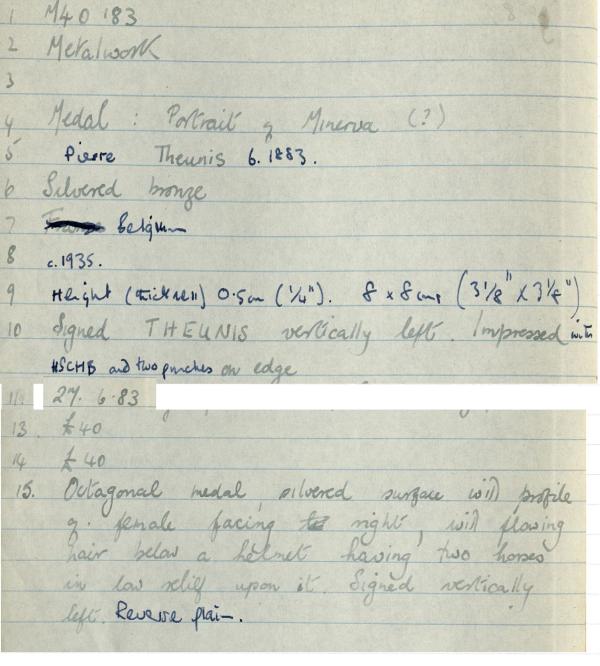 1 M40 183
2 Metalwork
3
4 Medal : Portrait of Minerva (?)
5 Pierre Theunis b. 1883.
6 Silvered bronze
7 France Belgium
8 c. 1935.
9 Height (thickness) 0.5cm (1/4"). 8 x 8 cms (3 1/8" X 3 1/8")
10 Signed THEUNIS vertically left. Impressed with
HSCHB and two punches on edge
11. 27. 6.83
13. £40
14 £40
15. Octagonal medal, silvered surface with profile
of female facing right, with flowing
hair below a helmet having two horses
in low relief upon it. Signed vertically
left. Reverse plain.